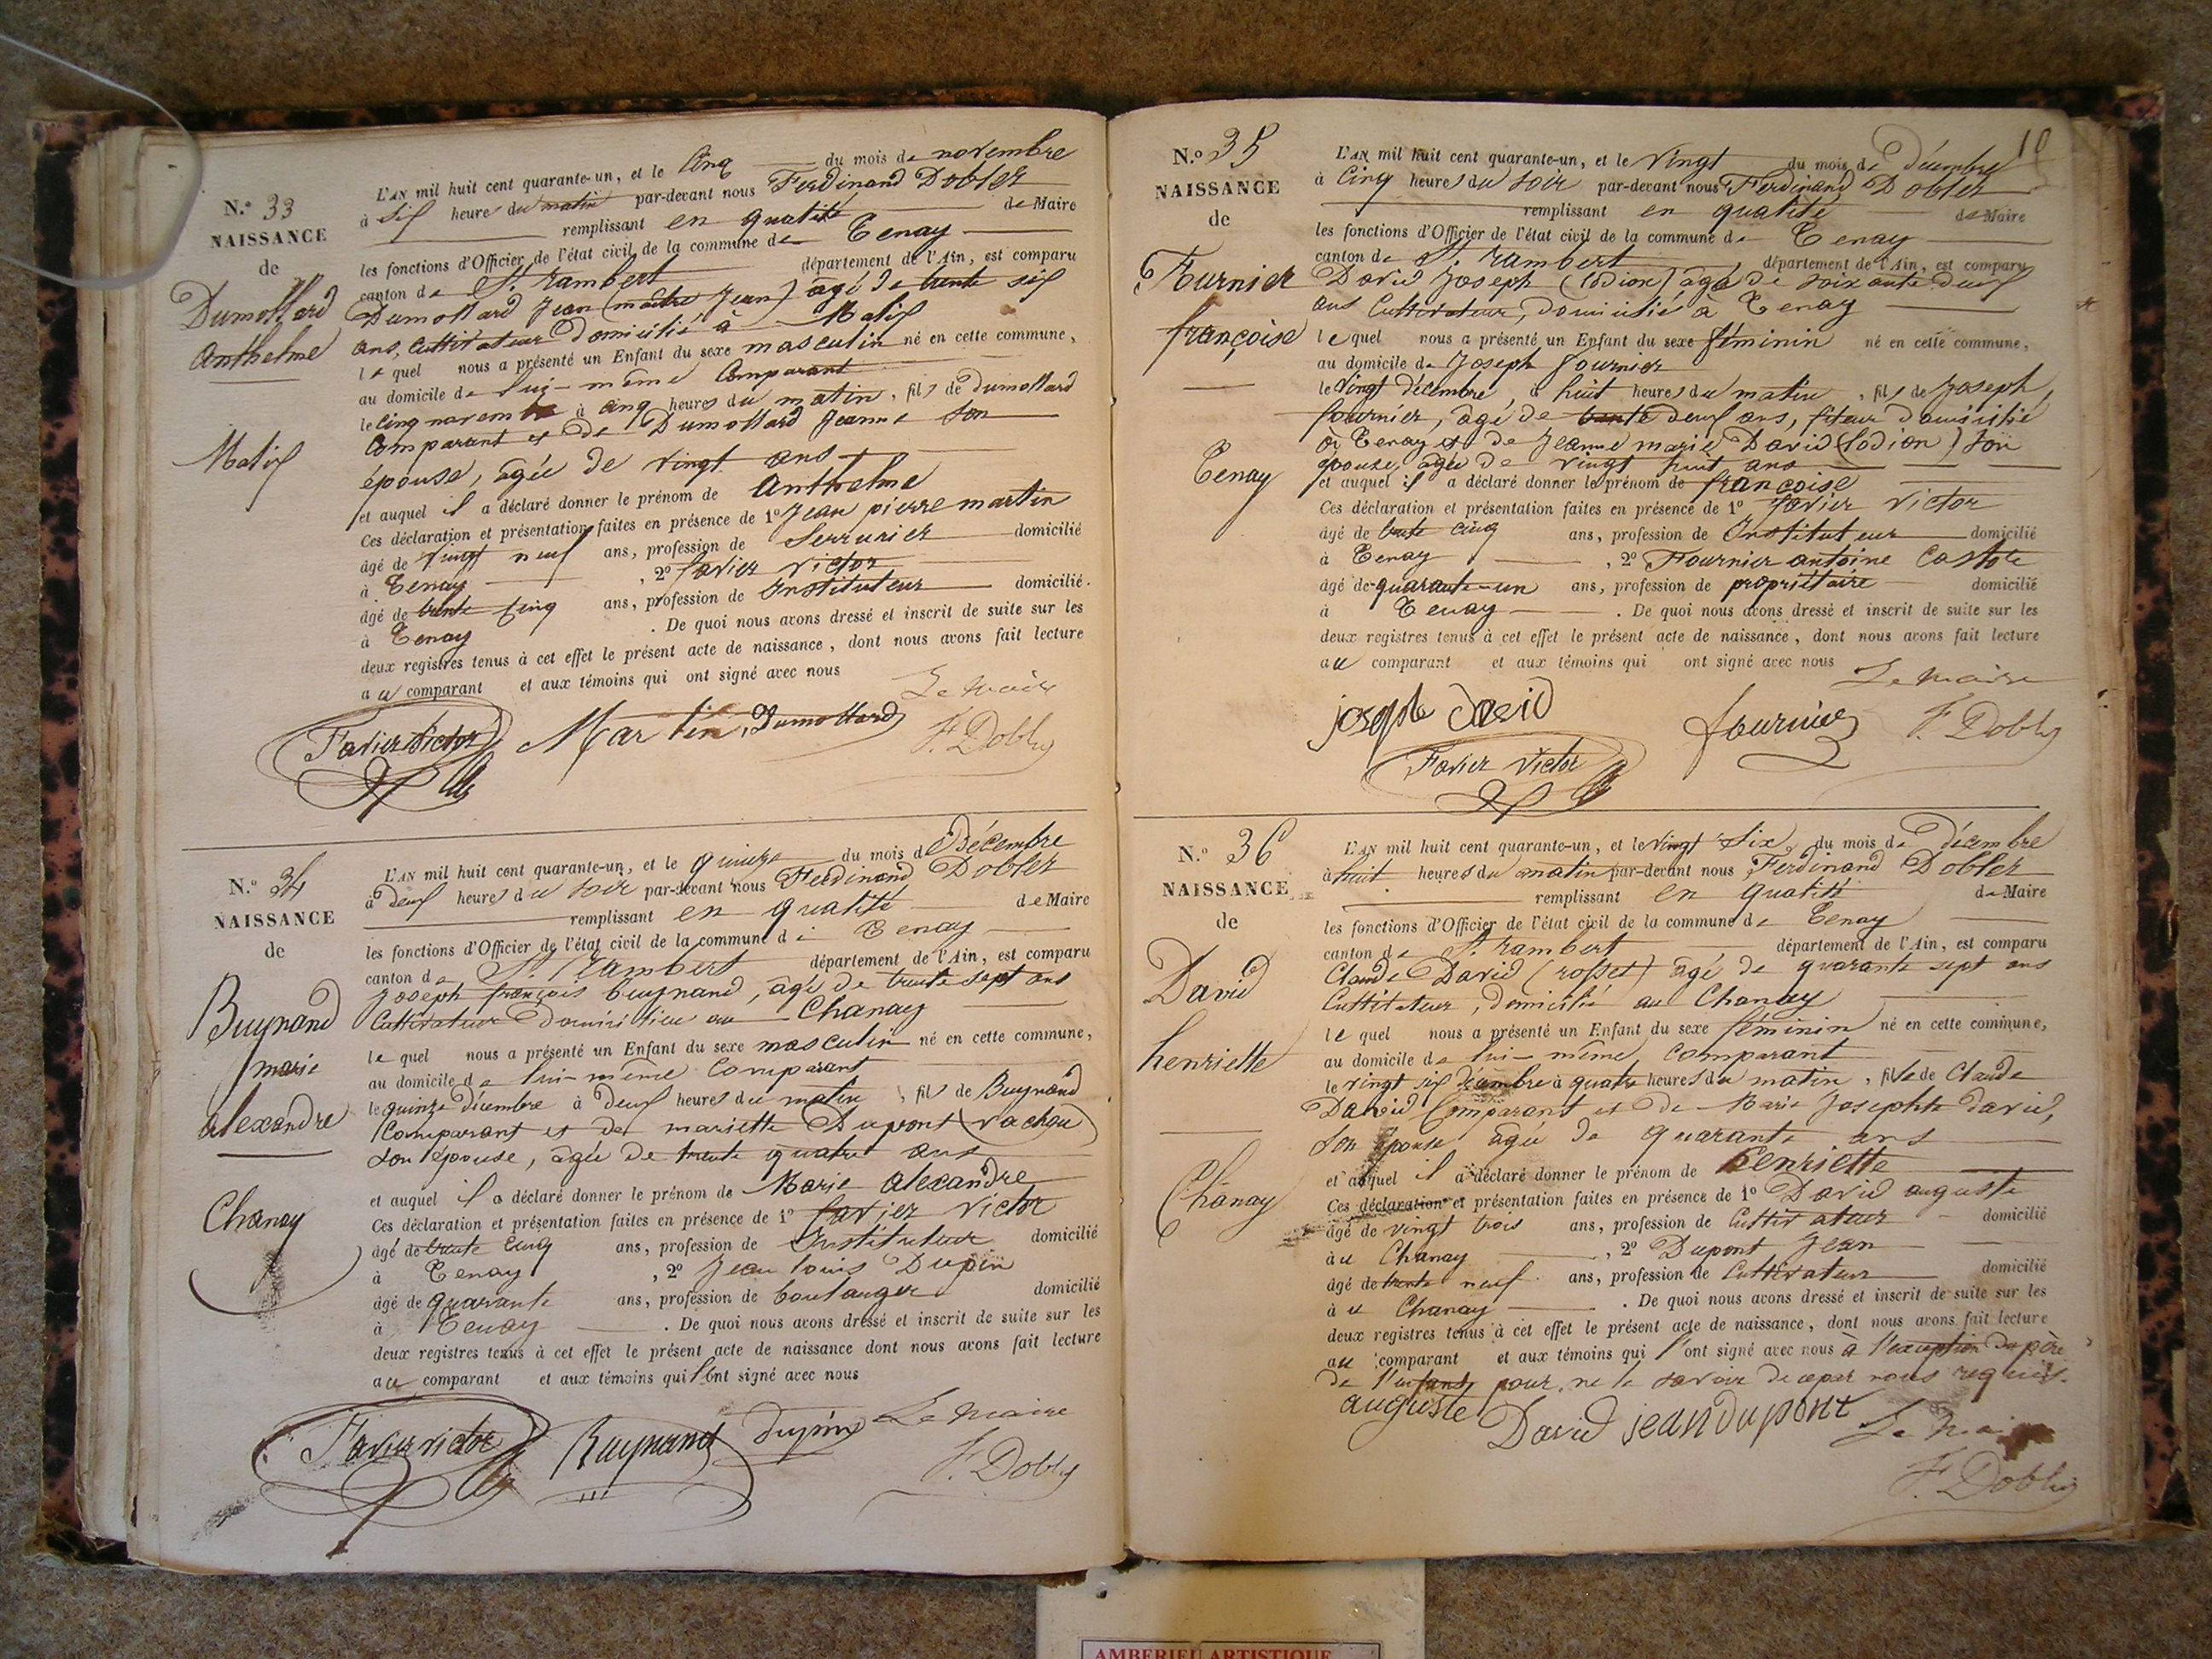 N.o 33
NAISSANCE
de
Dumollard
Anthelme
Matix
L'AN mil huit cent quarante-un, et le Cinq du mois de novembre
à Six heures du matin par-devant nous Ferdinand Dobler
remplissant en qualité de Maire
les fonctions d'Officier de l'état civil de la commune de Tenay
canton de St. Rambert département de l'Ain, est comparu
Dumollard Jean (maître Jean) âgé de trente six
ans, Cultivateur domicilié à Matix
lequel nous a présenté un Enfant du sexe masculin né en cette commune,
au domicile de lui-même Comparant
le cinq novembre à cinq heures du matin, fils de Dumollard
Comparant et de Dumollard Jeanne son
épouse, âgée de vingt ans
et auquel il a déclaré donner le prénom de Anthelme
Ces déclaration et présentation faites en présence de 1o Jean pierre martin
âgé de vingt neuf ans, profession de Serrurier domicilié
à Tenay, 2o favier victor
âgé de trente cinq ans, profession de Instituteur domicilié.
à Tenay. De quoi nous avons dressé et inscrit de suite sur les
deux registres tenus à cet effet le présent acte de naissance, dont nous avons fait lecture
au comparant et aux témoins qui ont signé avec nous
Le Maire
Favier Victor Martin Dumollard F. Dobler
N.o 34
NAISSANCE
de
Buynand
marie
alexandre
Chanay
L'AN mil huit cent quarante-un, et le quinze du mois de Décembre
à deux heures du soir par-devant nous Ferdinand Dobler
remplissant en qualité de Maire
les fonctions d'Officier de l'état civil de la commune de Tenay
canton de St. Rambert département de l'Ain, est comparu
Joseph françois buynand, âgé de trente sept ans
Cultivateur domicilié au Chanay
lequel nous a présenté un Enfant du sexe masculin né en cette commune,
au domicile de lui-même Comparant
le quinze décembre à deux heures du matin, fils de Buynand
Comparant et de mariette Dupont (vachon)
son épouse, âgée de trente quatre ans
et auquel il a déclaré donner le prénom de Marie alexandre
Ces déclaration et présentation faites en présence de 1o favier victor
âgé de trente cinq ans, profession de Instituteur domicilié
à Tenay, 2o Jean louis Dupin
âgé de quarante ans, profession de boulanger domicilié
à Tenay. De quoi nous avons dressé et inscrit de suite sur les
deux registres tenus à cet effet le présent acte de naissance dont nous avons fait lecture
au comparant et aux témoins qui l'ont signé avec nous
Favier victor Buynand Dupin Le Maire
F. Dobler
10
N.o 35
NAISSANCE
de
Fournier
françoise
Tenay
L'AN mil huit cent quarante-un, et le vingt du mois de décembre
à Cinq heures du soir par-devant nous Ferdinand Dobler
remplissant en qualité de Maire
les fonctions d'Officier de l'état civil de la commune de Tenay
canton de St. Rambert, département de l'Ain, est comparu
David Joseph (lodion) âgé de soixante deux
ans Cultivateur, domicilié à Tenay
lequel nous a présenté un Enfant du sexe féminin né en cette commune,
au domicile de Joseph fournier
le vingt décembre, à huit heures du matin, fils de Joseph,
fournier, âgé de trente deux ans, fileur domicilié
à Tenay et de Jeanne marie David (lodion) son
épouse, âgée de vingt huit ans
et auquel il a déclaré donner le prénom de françoise
Ces déclaration et présentation faites en présence de 1o favier victor
âgé de trente cinq ans, profession de Instituteur domicilié
à Tenay, 2o Fournier antoine
âgé de quarante-un ans, profession de propriétaire domicilié
à Tenay. De quoi nous avons dressé et inscrit de suite sur les
deux registres tenus à cet effet le présent acte de naissance, dont nous avons fait lecture
au comparant et aux témoins qui ont signé avec nous
Le Maire
joseph david fournier F. Dobler
Favier Victor
N.o 36
NAISSANCE
de
David
henriette
Chanay
L'AN mil huit cent quarante-un, et le vingt six, du mois de décembre
à huit heures du matin par-devant nous Ferdinand Dobler
remplissant en qualité de Maire
les fonctions d'Officier de l'état civil de la commune de Tenay
canton de St. Rambert, département de l'Ain, est comparu
Claude David (rosset) âgé de quarante sept ans
Cultivateur, domicilié au Chanay
lequel nous a présenté un Enfant du sexe féminin né en cette commune,
au domicile de lui-même Comparant
le vingt six décembre à quatre heures du matin, fille de Claude
David Comparant et de Marie Josephte david,
son épouse âgée de quarante ans
et auquel il a déclaré donner le prénom de henriette
Ces déclaration et présentation faites en présence de 1o David auguste
âgé de vingt trois ans, profession de Cultivateur domicilié
au Chanay, 2o Dupont Jean
âgé de trente neuf ans, profession de Cultivateur domicilié
au Chanay. De quoi nous avons dressé et inscrit de suite sur les
deux registres tenus à cet effet le présent acte de naissance, dont nous avons fait lecture
au comparant et aux témoins qui l'ont signé avec nous à l'exception du père
de l'enfant, pour ne le savoir de ce par nous requis.
auguste David jean dupont Le Maire
F. Dobler
AMBERIEU ARTISTIQUE